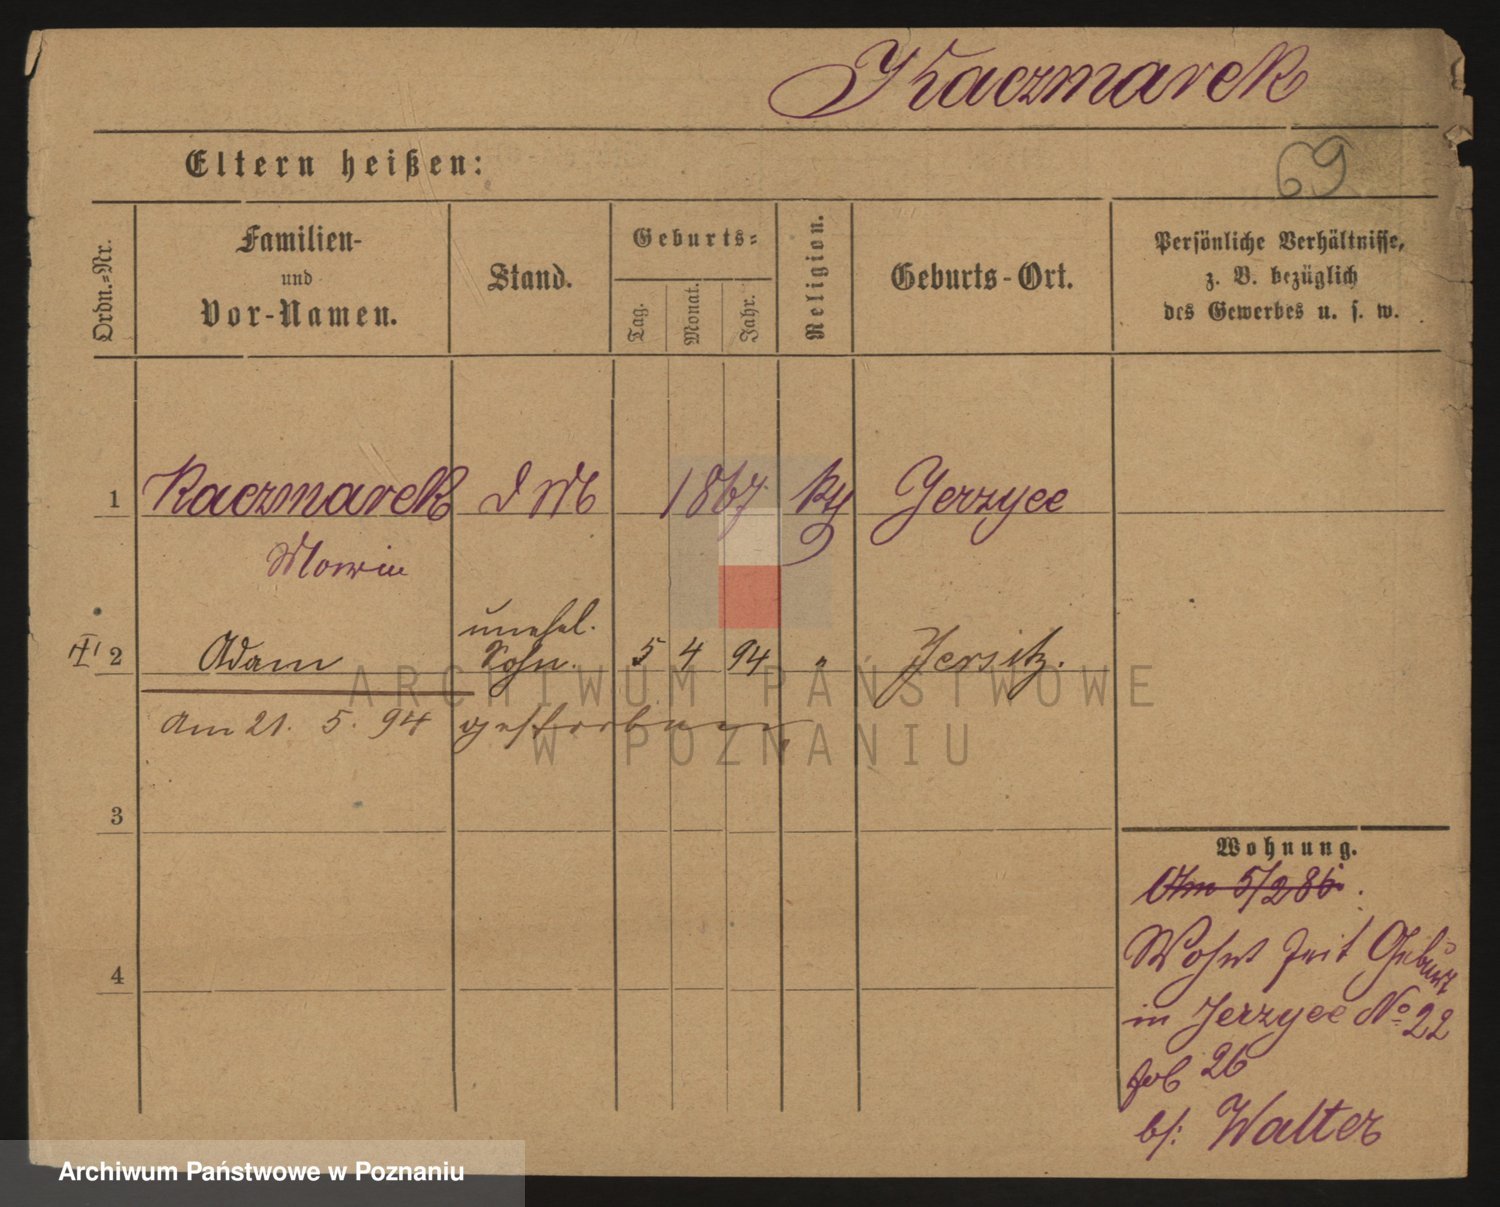 Kaczmarek
69
Eltern heißen:
Ordn.-Nr.
Familien-
und
Vor-Namen.
Stand.
Geburts-
Tag.
Monat.
Jahr.
Religion.
Geburts-Ort.
Persönliche Verhältnisse,
z. B. bezüglich
des Gewerbes u. s. w.
1 Kaczmarek 1867 Jerzyce
2 Adam unehel. Sohn. 5 4 94 " Jersitz.
Am 21. 5. 94 gestorben
ARCHIWUM PAŃSTWOWE
W POZNANIU
3
4
Wohnung.
Wohnt seit Geburt
in Jerzyce No 22
26
bei Walter
Archiwum Państwowe w Poznaniu